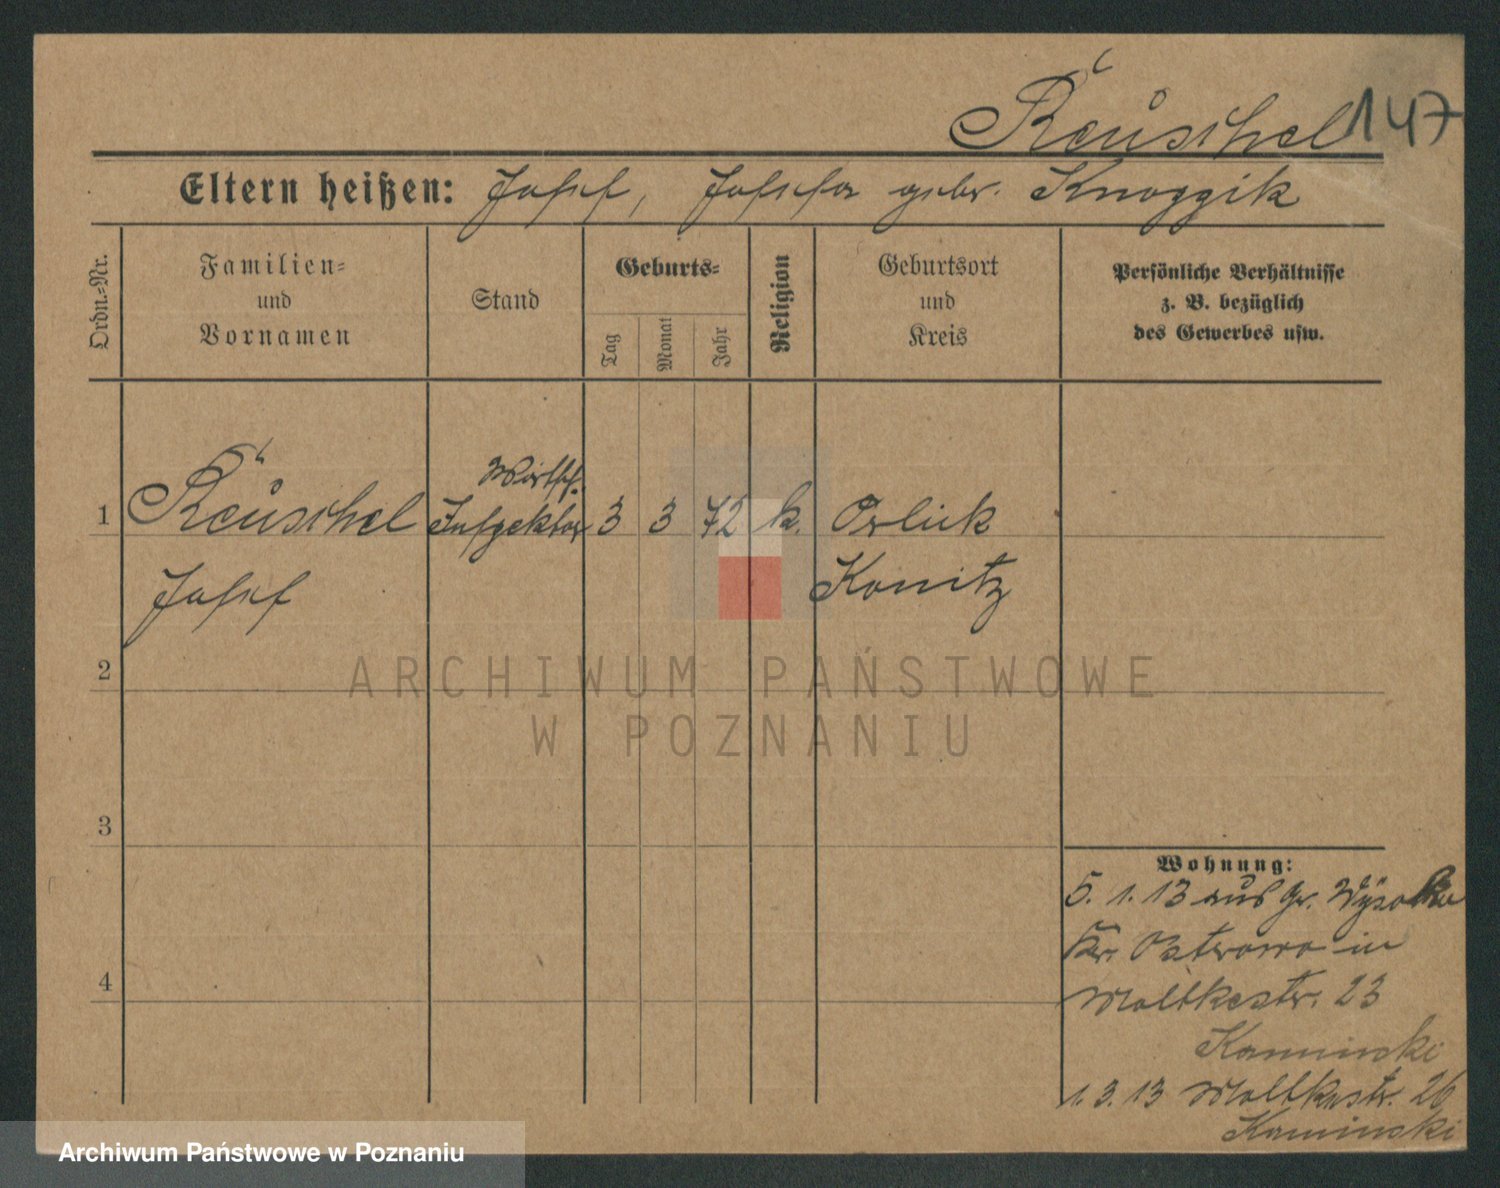 Reuschel 147
Eltern heißen: Josef, Josefa gebr. Knoggik
Ordn.-Nr.
Familien-
und
Vornamen
Stand
Geburts-
Tag
Monat
Jahr
Religion
Geburtsort
und
Kreis
Persönliche Verhältnisse
z. B. bezüglich
des Gewerbes usw.
Wirtsch.
1 Reuschel Inspektor 3 3 72 k. Orlick
Josef Konitz
2
ARCHIWUM PAŃSTWOWE
W POZNANIU
3
Wohnung:
5. 1. 13 aus Gr. Wysocko
Kr. Ostrowo in
4
Moltkestr. 23
Kaminski
1. 3. 13 Moltkestr. 26
Kaminski
Archiwum Państwowe w Poznaniu